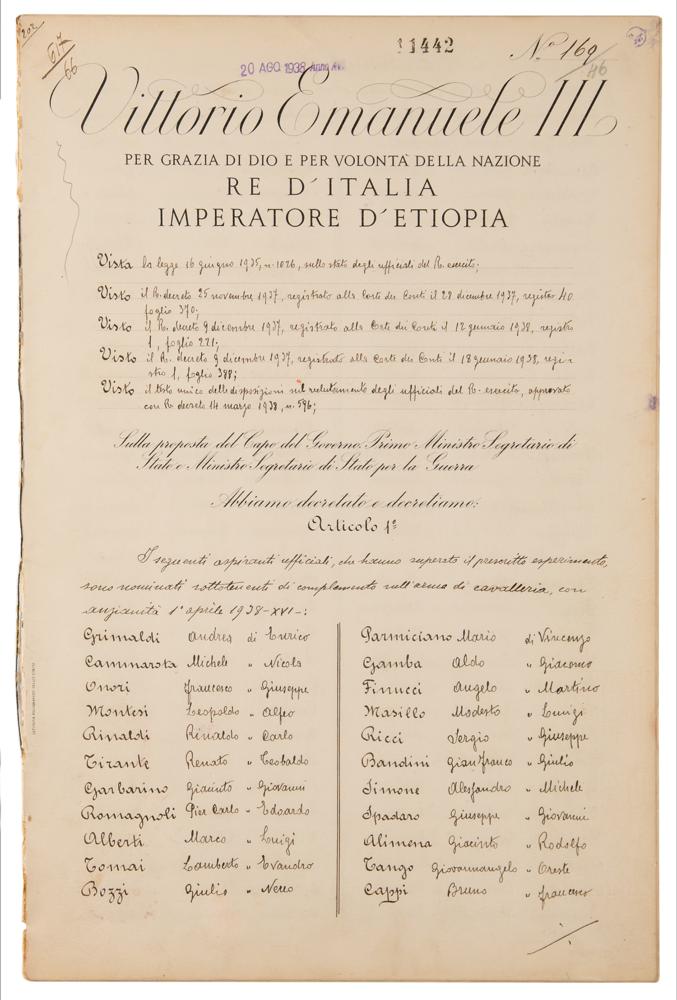 202.
617
66
20 AGO. 1938 Anno XVI
11442
N.° 169
46
Vittorio Emanuele III
PER GRAZIA DI DIO E PER VOLONTÀ DELLA NAZIONE
RE D'ITALIA
IMPERATORE D'ETIOPIA
Vista la legge 16 giugno 1935, n. 1026, sullo stato degli ufficiali del R. esercito;
Visto il R. decreto 25 novembre 1937, registrato alla Corte dei Conti il 28 dicembre 1937, registro 40
foglio 370;
Visto il R. decreto 9 dicembre 1937, registrato alla Corte dei Conti il 12 gennaio 1938, registro
1, foglio 221;
Visto il R. decreto 9 dicembre 1937, registrato alla Corte dei Conti il 18 gennaio 1938, regi-
stro 1, foglio 388;
Visto il testo unico delle disposizioni sul reclutamento degli ufficiali del R. esercito, approvato
con R. decreto 14 marzo 1938, n. 596;
Sulla proposta del Capo del Governo. Primo Ministro Segretario di
Stato e Ministro Segretario di Stato per la Guerra
Abbiamo decretato e decretiamo:
Articolo 1°
I seguenti aspiranti ufficiali, che hanno superato il prescritto esperimento,
sono nominati sottotenenti di complemento nell'arma di cavalleria, con
anzianità 1° aprile 1938-XVI-:
Grimaldi Andrea di Enrico
Cammarota Michele " Nicola
Onori Francesco " Giuseppe
Montesi Leopoldo " Alfeo
Rinaldi Rinaldo " Carlo
Tirante Renato " Teobaldo
Garbarino Giacinto " Giovanni
Romagnoli Pier Carlo " Edoardo
Alberti Marco " Luigi
Tomai Lamberto " Evandro
Bozzi Giulio " Nereo
Parmiciano Mario di Vincenzo
Gamba Aldo " Giacomo
Finucci Angelo " Martino
Masillo Modesto " Luigi
Ricci Sergio " Giuseppe
Bandini Gianfranco " Giulio
Simone Alessandro " Michele
Spadaro Giuseppe " Giovanni
Alimena Giacinto " Rodolfo
Tango Giovannangelo " Oreste
Cappi Bruno " Francesco